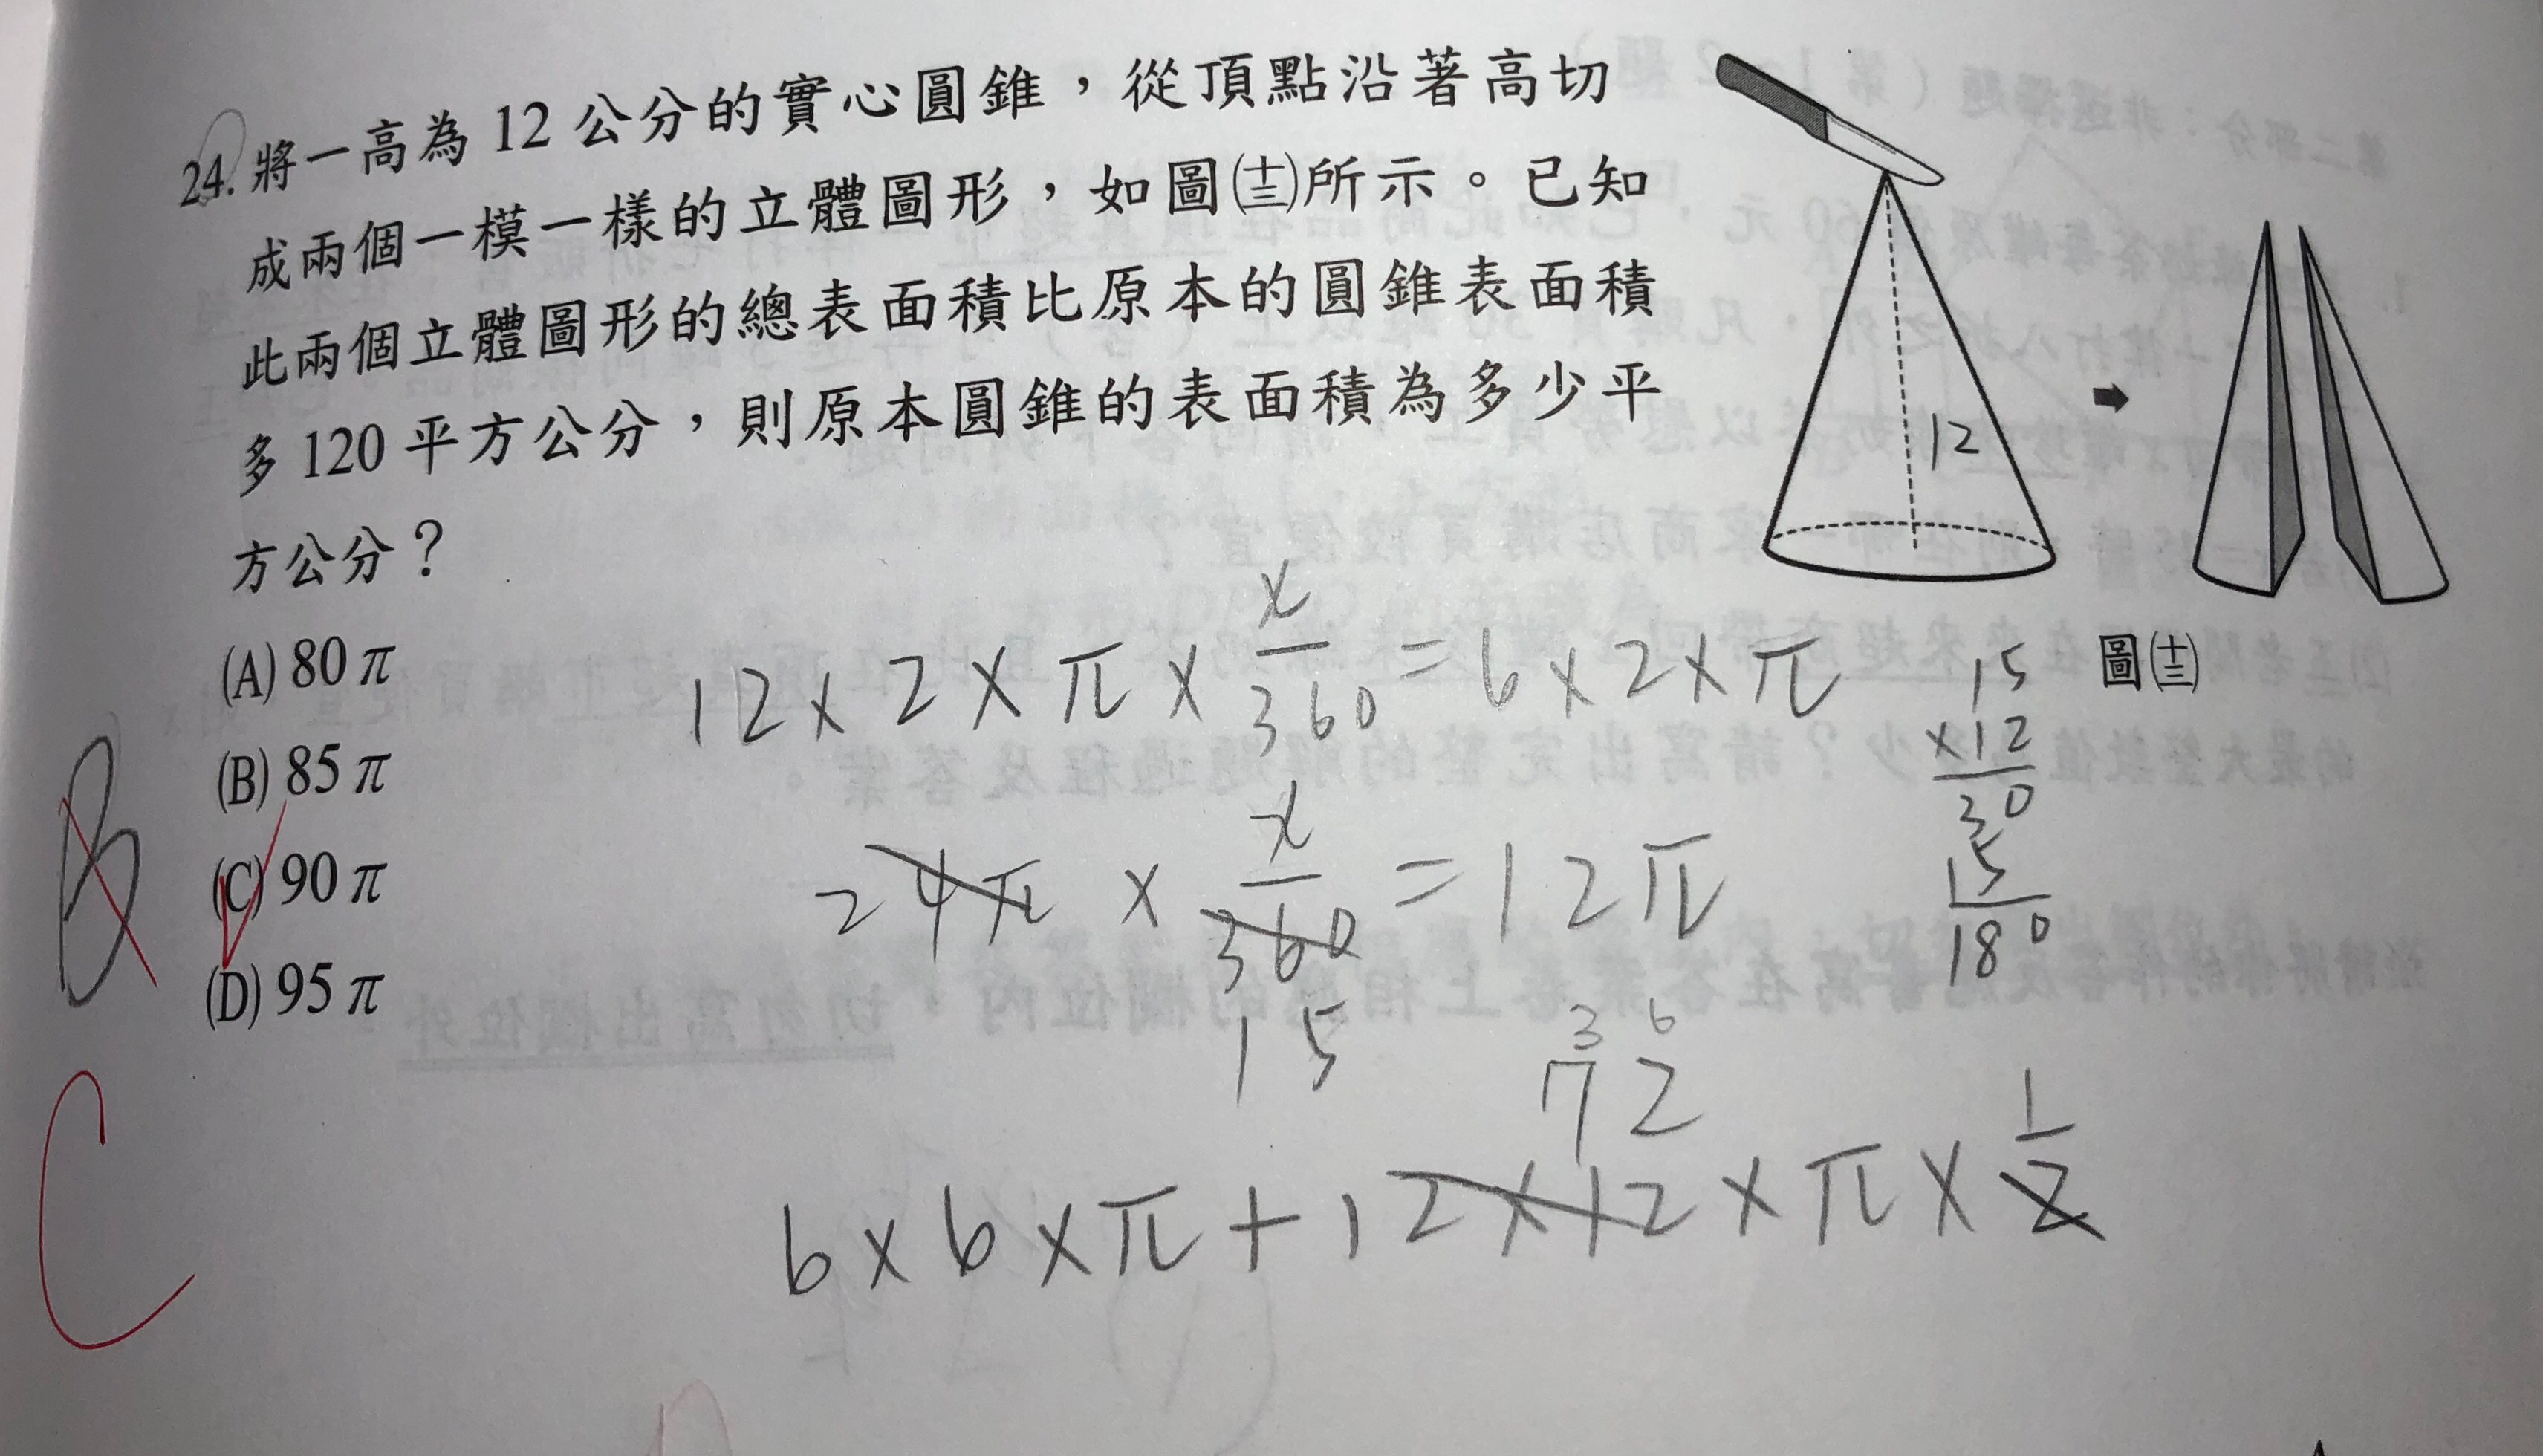 24. 將一高為 12 公分的實心圓錐，從頂點沿著高切
成兩個一模一樣的立體圖形，如圖㈩㈢所示。已知
此兩個立體圖形的總表面積比原本的圓錐表面積
多 120 平方公分，則原本圓錐的表面積為多少平
方公分？
(A) 80π
(B) 85π
(C) 90π
(D) 95π
12
圖㈩㈢
B
C
12×2×π×x/360=6×2×π
24π×x/360=12π
15
15
×12
30
15
180
36
72
6×6×π+12×12×π×1/2